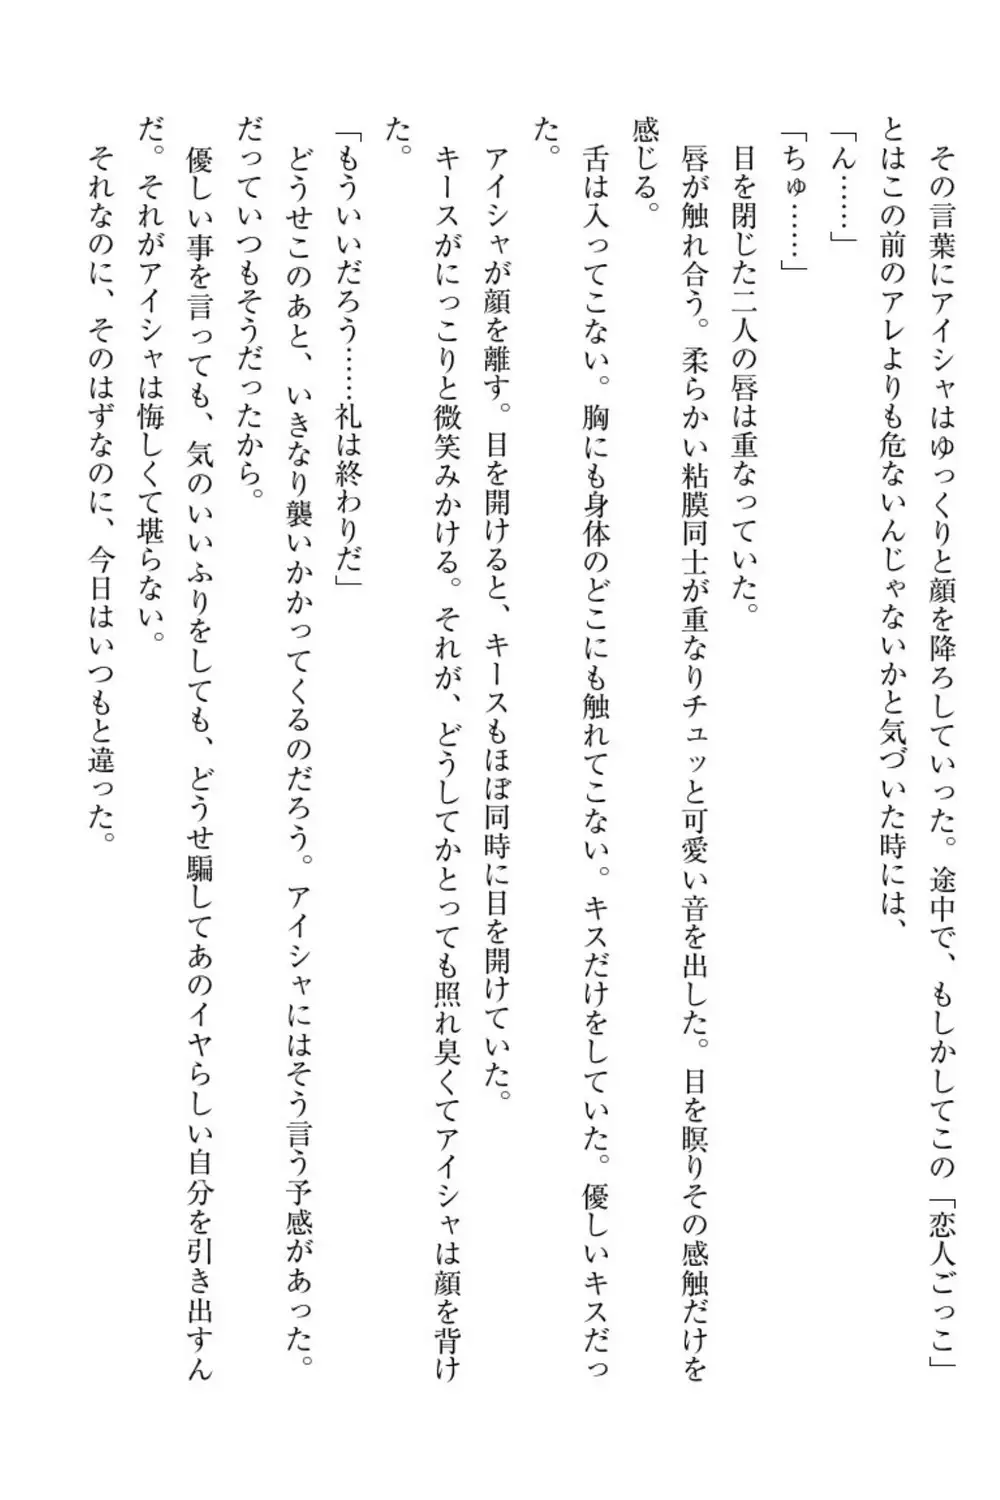 その言葉にアイシャはゆっくりと顔を降ろしていった。途中で、もしかしてこの「恋人ごっこ」
とはこの前のアレよりも危ないんじゃないかと気づいた時には、
「ん……」
「ちゅ……」
　目を閉じた二人の唇は重なっていた。
　唇が触れ合う。柔らかい粘膜同士が重なりチュッと可愛い音を出した。目を瞑りその感触だけを
感じる。
　舌は入ってこない。胸にも身体のどこにも触れてこない。キスだけをしていた。優しいキスだっ
た。
　アイシャが顔を離す。目を開けると、キースもほぼ同時に目を開けていた。
　キースがにっこりと微笑みかける。それが、どうしてかとっても照れ臭くてアイシャは顔を背け
た。
「もういいだろう……礼は終わりだ」
　どうせこのあと、いきなり襲いかかってくるのだろう。アイシャにはそう言う予感があった。
だっていつもそうだったから。
　優しい事を言っても、気のいいふりをしても、どうせ騙してあのイヤらしい自分を引き出すん
だ。それがアイシャは悔しくて堪らない。
　それなのに、そのはずなのに、今日はいつもと違った。